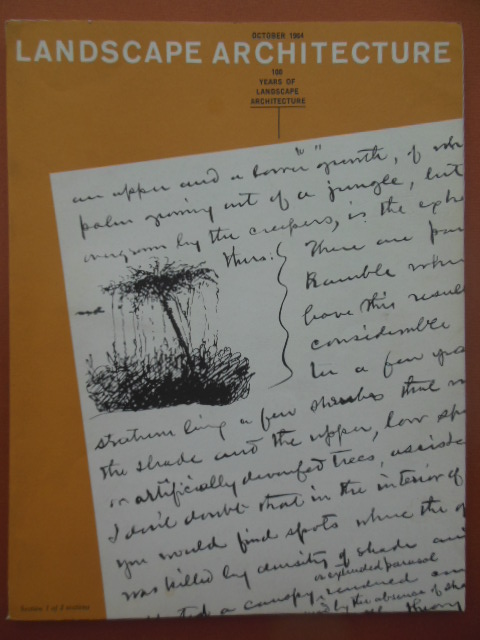 OCTOBER 1964
LANDSCAPE ARCHITECTURE
100
YEARS OF
LANDSCAPE
ARCHITECTURE
an upper and a lower "" growth, of
palm growing out of a jungle, but
overgrown by the creepers, is the
thus:
There are
Ramble
leave this
considerable
In a few
stratum being a few shrubs that
the shade and the upper, low
or artificially dwarfed trees,
I don't doubt that in the interior of
you would find spots where the
was killed by density of shade
or extended parasol
a canopy, rendered
by the absence of
theory
Section 1 of 2 sections